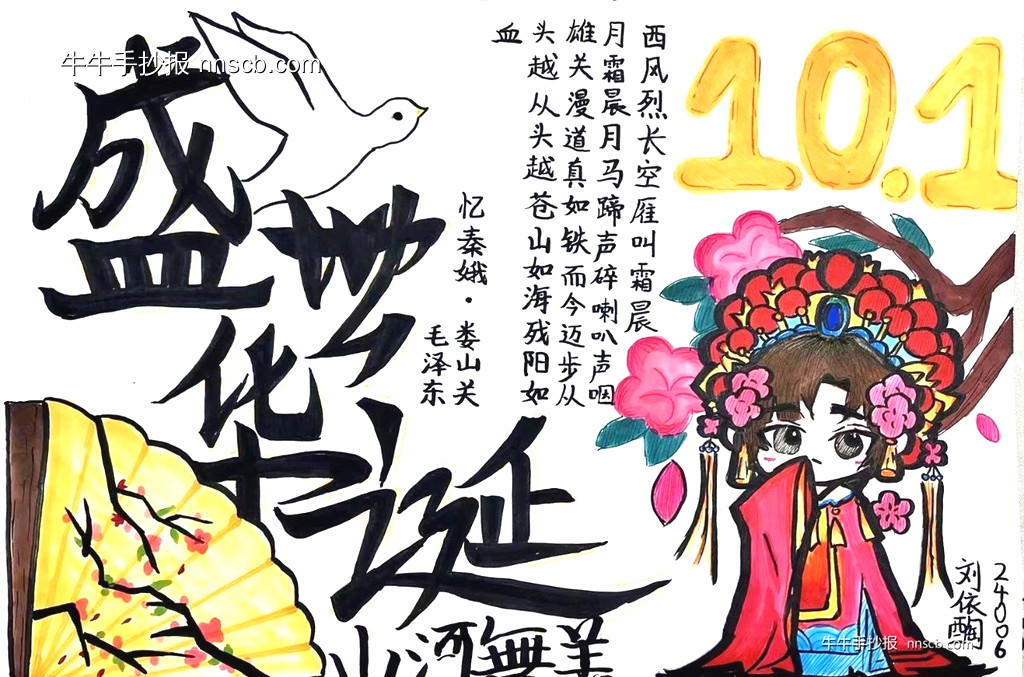 牛牛手抄报 nnscb.com
10.1
盛世华诞
山河無
西风烈长空雁叫霜晨
月霜晨月马蹄声碎喇叭声咽
雄关漫道真如铁而今迈步从
头越从头越苍山如海残阳如
血
忆秦娥·娄山关
毛泽东
24006
刘依
牛牛手抄报 nnscb.com